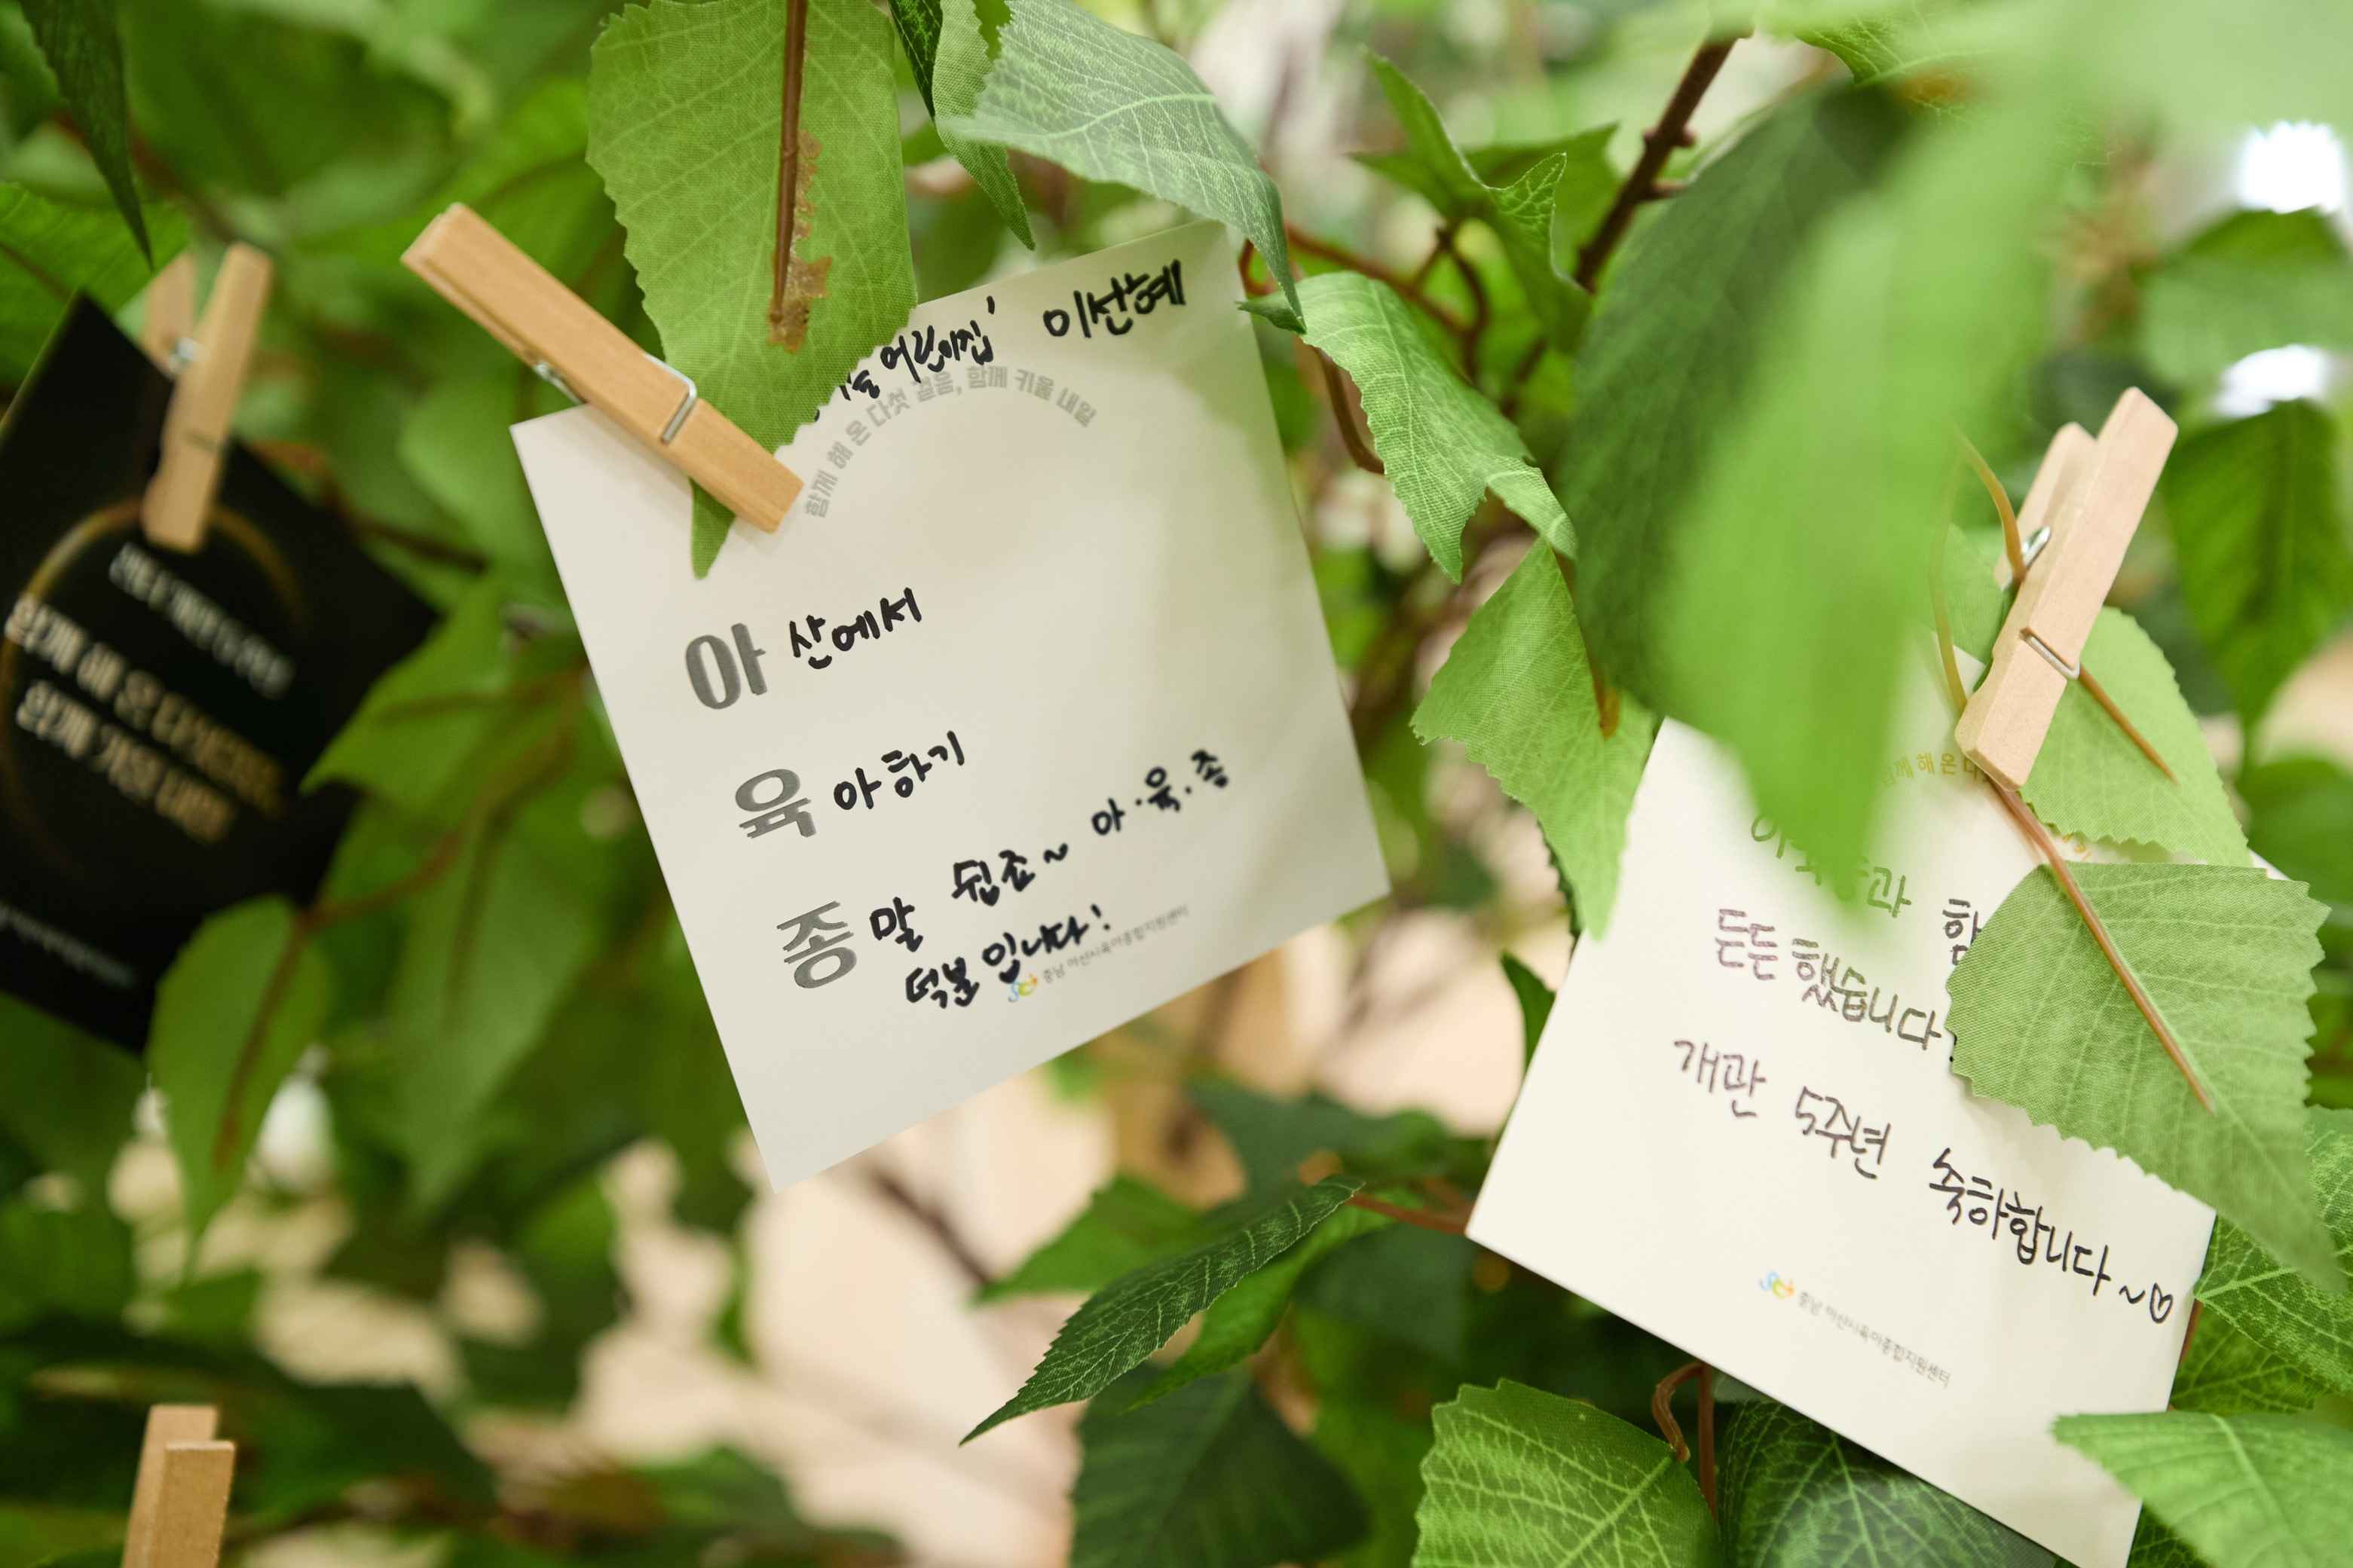 어린이집' 이선혜
함께 해 온 다섯 걸음, 함께 키울 내일
아 산에서
육 아하기
종 말 쉽죠~ 아·육·종
덕분입니다!
충남 아산시육아종합지원센터
함께 해 온 다
든든했습니다
개관 5주년 축하합니다~♡
충남 아산시육아종합지원센터
함께 해 온 다섯 걸음,
함께 키울 내일